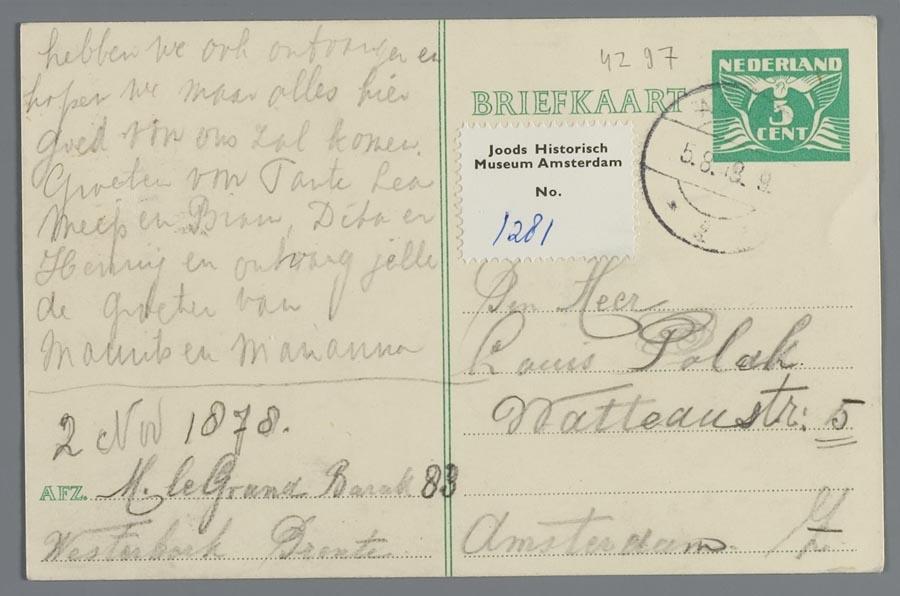 hebben we ook ontvangen en
hopen we maar alles hier
goed van ons zal komen.
Groeten van Tante Lea
Meijs en Bram, Dita en
Henny en ontvang jelle
de groeten van
Maurits en Marianna
2 Nov 1878.
AFZ. M. le Grand Barak 83
Westerbork Drente
42 97
BRIEFKAART
NEDERLAND
5
CENT
5.8. 9.
Joods Historisch
Museum Amsterdam
No.
1281
Den Heer
Louis Polak
Watteaustr: 5
Amsterdam.